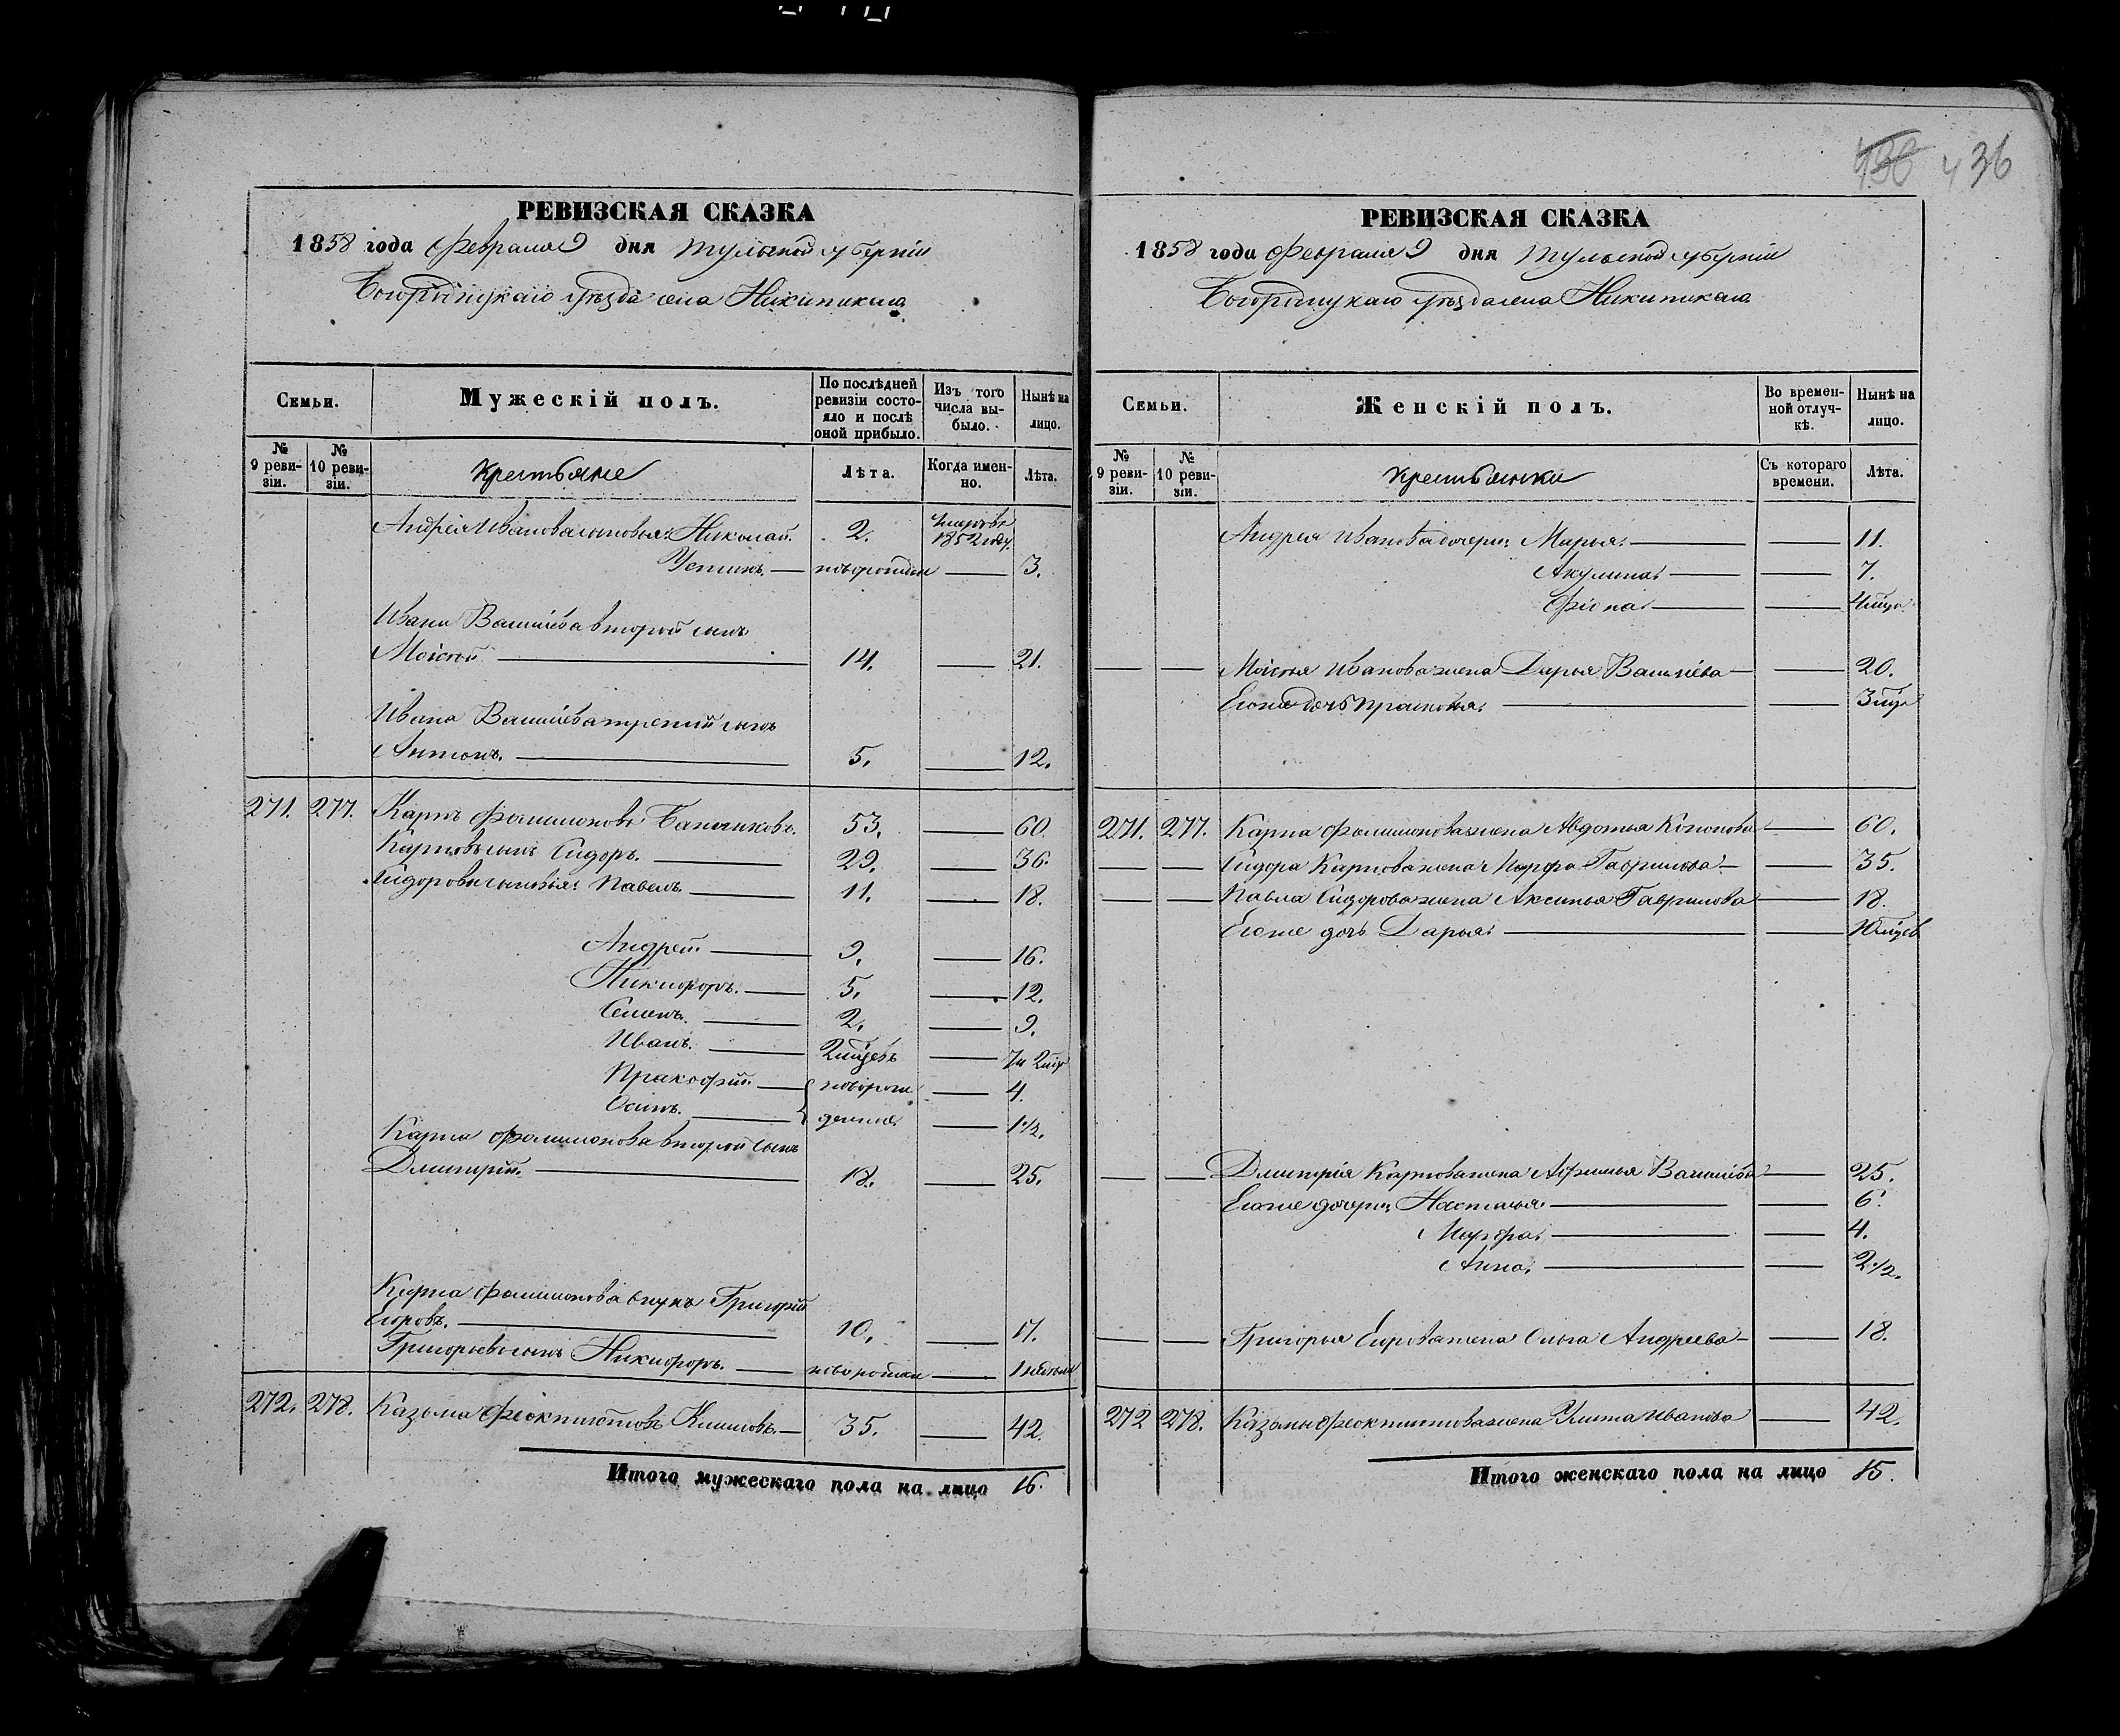 436
РЕВИЗСКАЯ СКАЗКА
1858 года Февраля 9 дня Тульской губерніи
Богородицкаго уѣзда села Никитскаго
Семьи.
Мужескій полъ.
По послѣдней ревизіи состояло и послѣ оной прибыло.
Изъ того числа выбыло.
Нынѣ на лицо.
№ 9 ревизіи.
№ 10 ревизіи.
Крестьяне
Лѣта.
Когда именно.
Лѣта.
Андрея Иванова сыновья: Николай. 2. умеръ въ 1852 году.
Устинъ. — новорожден — 3.
Ивана Васильева второй сынъ
Моисей — 14. — 21.
Ивана Васильева третій сынъ
Антонъ. — 5. — 12.
271. 277. Карпъ Филимоновъ 53. — 60.
Карповъ сынъ Сидоръ. — 29. — 36.
Сидоровы сыновья: Павелъ — 11. — 18.
Андрей — 9. — 16.
Никифоръ. — 5. — 12.
Семенъ. — 2. — 9.
Иванъ. — 2 мѣсяцевъ — 7 и 2 мѣся
Пракофій — новорож — 4.
Осипъ. — денные — 1 1/2.
Карпа Филимонова второй сынъ
Дмитрій. — 18. — 25.
Карпа Филимонова внукъ Григорій
Егоровъ. — 10. — 17.
Григорьевъ сынъ Никифоръ. — новорожден — 1
272. 278. Казьма Феоктистовъ Климовъ. — 35. — 42.
Итого мужескаго пола на лицо 16.
РЕВИЗСКАЯ СКАЗКА
1858 года Февраля 9 дня Тульской губерніи
Богородицкаго уѣзда села Никитскаго
Семьи.
Женскій полъ.
Во временной отлучкѣ.
Нынѣ на лицо.
№ 9 ревизіи.
№ 10 ревизіи.
Крестьянки
Съ котораго времени.
Лѣта.
Андрея Иванова дочери: Марья. — — 11.
Акулина. — — 7.
— —
— — Моисея Иванова жена Дарья Васильева — — 20.
Егоже дочь Прасковья. — — 3 мѣся
271. 277. Карпа Филимонова жена Авдотья Кононова — 60.
— — Сидора Карпова жена Марфа Гаврилова — — 35.
— — Павла Сидорова жена Аксинья Гаврилова — 18.
Егоже дочь Дарья. — —
— — Дмитрія Карпова жена Афимья Васильева — 25.
Егоже дочери: Настасья — — 6.
Марфа. — — 4.
Анна. — — 2 1/2.
— — Григорья Егорова жена Ольга Андреева — — 18.
272 278. Казьмы Феоктистова жена Улита Иванова — 42.
Итого женскаго пола на лицо 15.